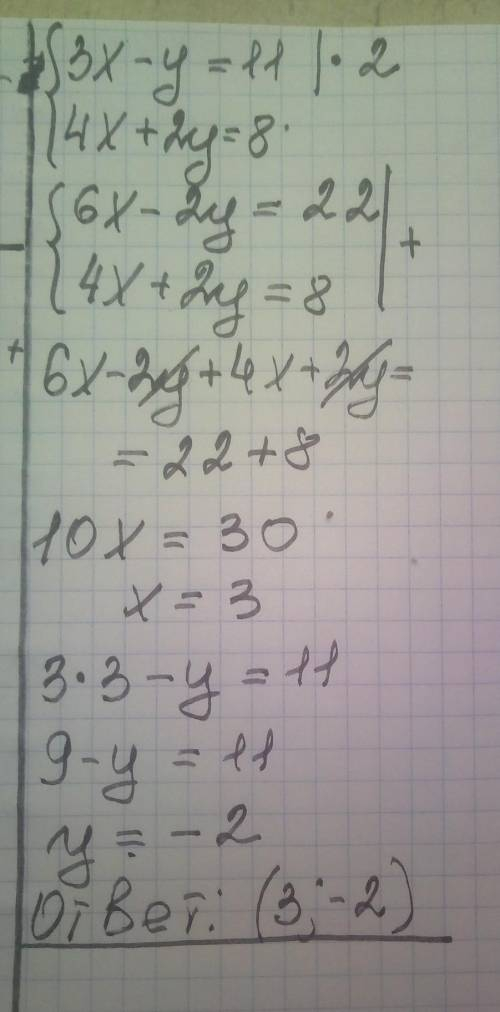 {3x - y = 11 | · 2
{4x + 2y = 8
{6x - 2y = 22 | +
{4x + 2y = 8
6x - 2y + 4x + 2y =
= 22 + 8
10x = 30
x = 3
3 · 3 - y = 11
9 - y = 11
y = -2
Ответ: (3; -2)